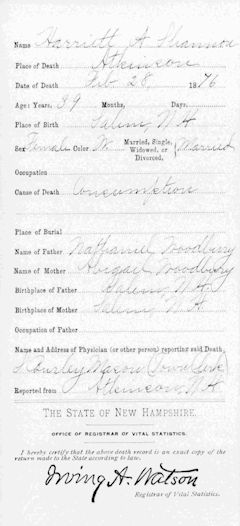 Name Harriett A Shannon
Place of Death Atkinson
Date of Death Feb. 28, 1876
Age: Years, 39 Months, Days,
Place of Birth Salem, N H
Sex Female Color W. Married, Single, Widowed, or Divorced, Married
Occupation
Cause of Death Consumption
Place of Burial
Name of Father Nathaniel Woodbury
Name of Mother Abigail Woodbury
Birthplace of Father Salem, N H
Birthplace of Mother Salem, N H
Occupation of Father
Name and Address of Physician (or other person) reporting said Death
Mason (Town Clerk)
Reported from Atkinson, N.H
THE STATE OF NEW HAMPSHIRE.
OFFICE OF REGISTRAR OF VITAL STATISTICS.
I hereby certify that the above death record is an exact copy of the
return made to the State according to law.
Irving A. Watson
Registrar of Vital Statistics.